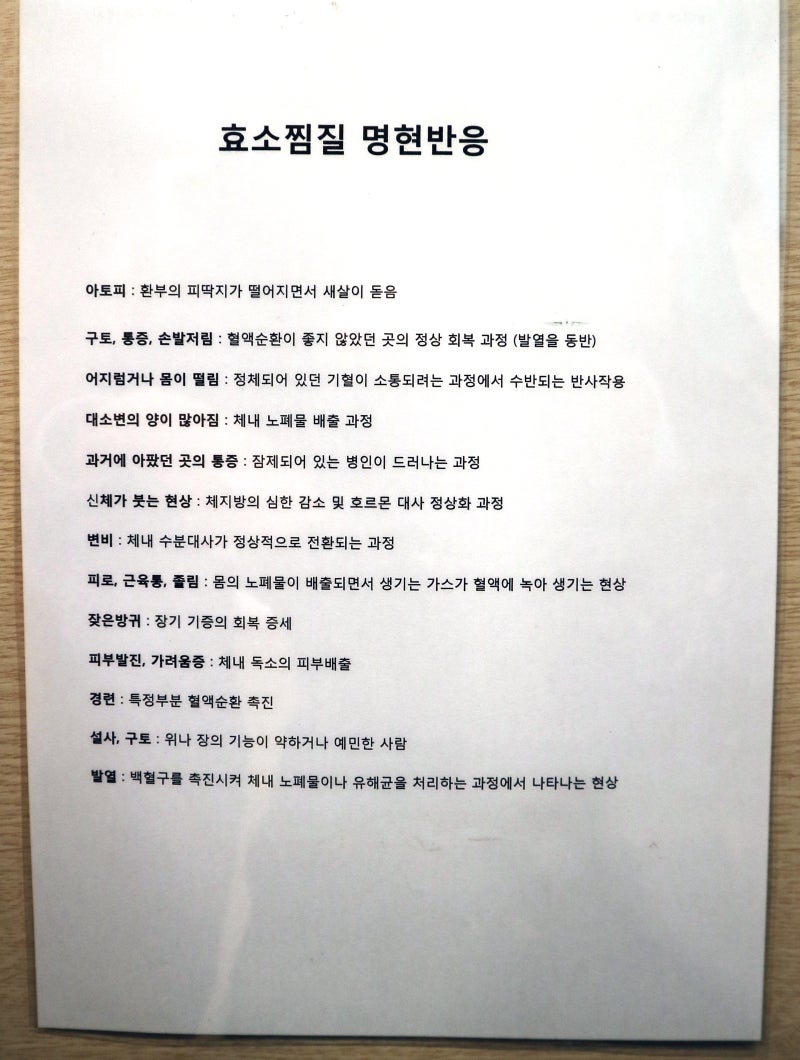 효소찜질 명현반응
아토피 : 환부의 피딱지가 떨어지면서 새살이 돋음
구토, 통증, 손발저림 : 혈액순환이 좋지 않았던 곳의 정상 회복 과정 (발열을 동반)
어지럼거나 몸이 떨림 : 정체되어 있던 기혈이 소통되려는 과정에서 수반되는 반사작용
대소변의 양이 많아짐 : 체내 노폐물 배출 과정
과거에 아팠던 곳의 통증 : 잠제되어 있는 병인이 드러나는 과정
신체가 붓는 현상 : 체지방의 심한 감소 및 호르몬 대사 정상화 과정
변비 : 체내 수분대사가 정상적으로 전환되는 과정
피로, 근육통, 졸림 : 몸의 노폐물이 배출되면서 생기는 가스가 혈액에 녹아 생기는 현상
잦은방귀 : 장기 기증의 회복 증세
피부발진, 가려움증 : 체내 독소의 피부배출
경련 : 특정부분 혈액순환 촉진
설사, 구토 : 위나 장의 기능이 약하거나 예민한 사람
발열 : 백혈구를 촉진시켜 체내 노폐물이나 유해균을 처리하는 과정에서 나타나는 현상